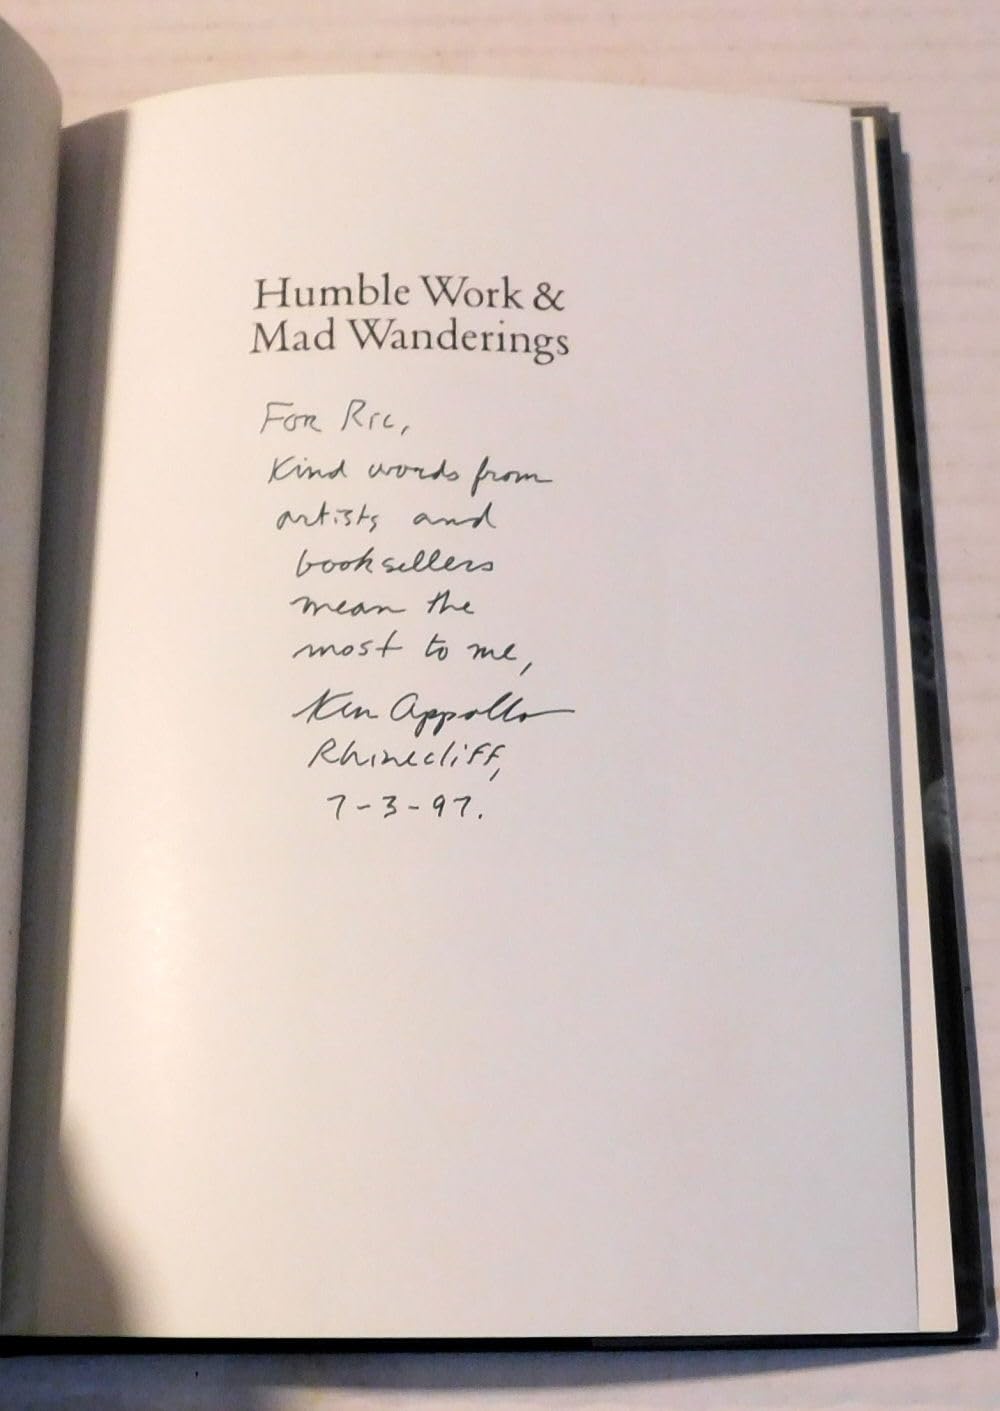 Humble Work &
Mad Wanderings
For Ric,
Kind words from
artists and
booksellers
mean the
most to me,
Ken Appollo
Rhinecliff,
7-3-97.